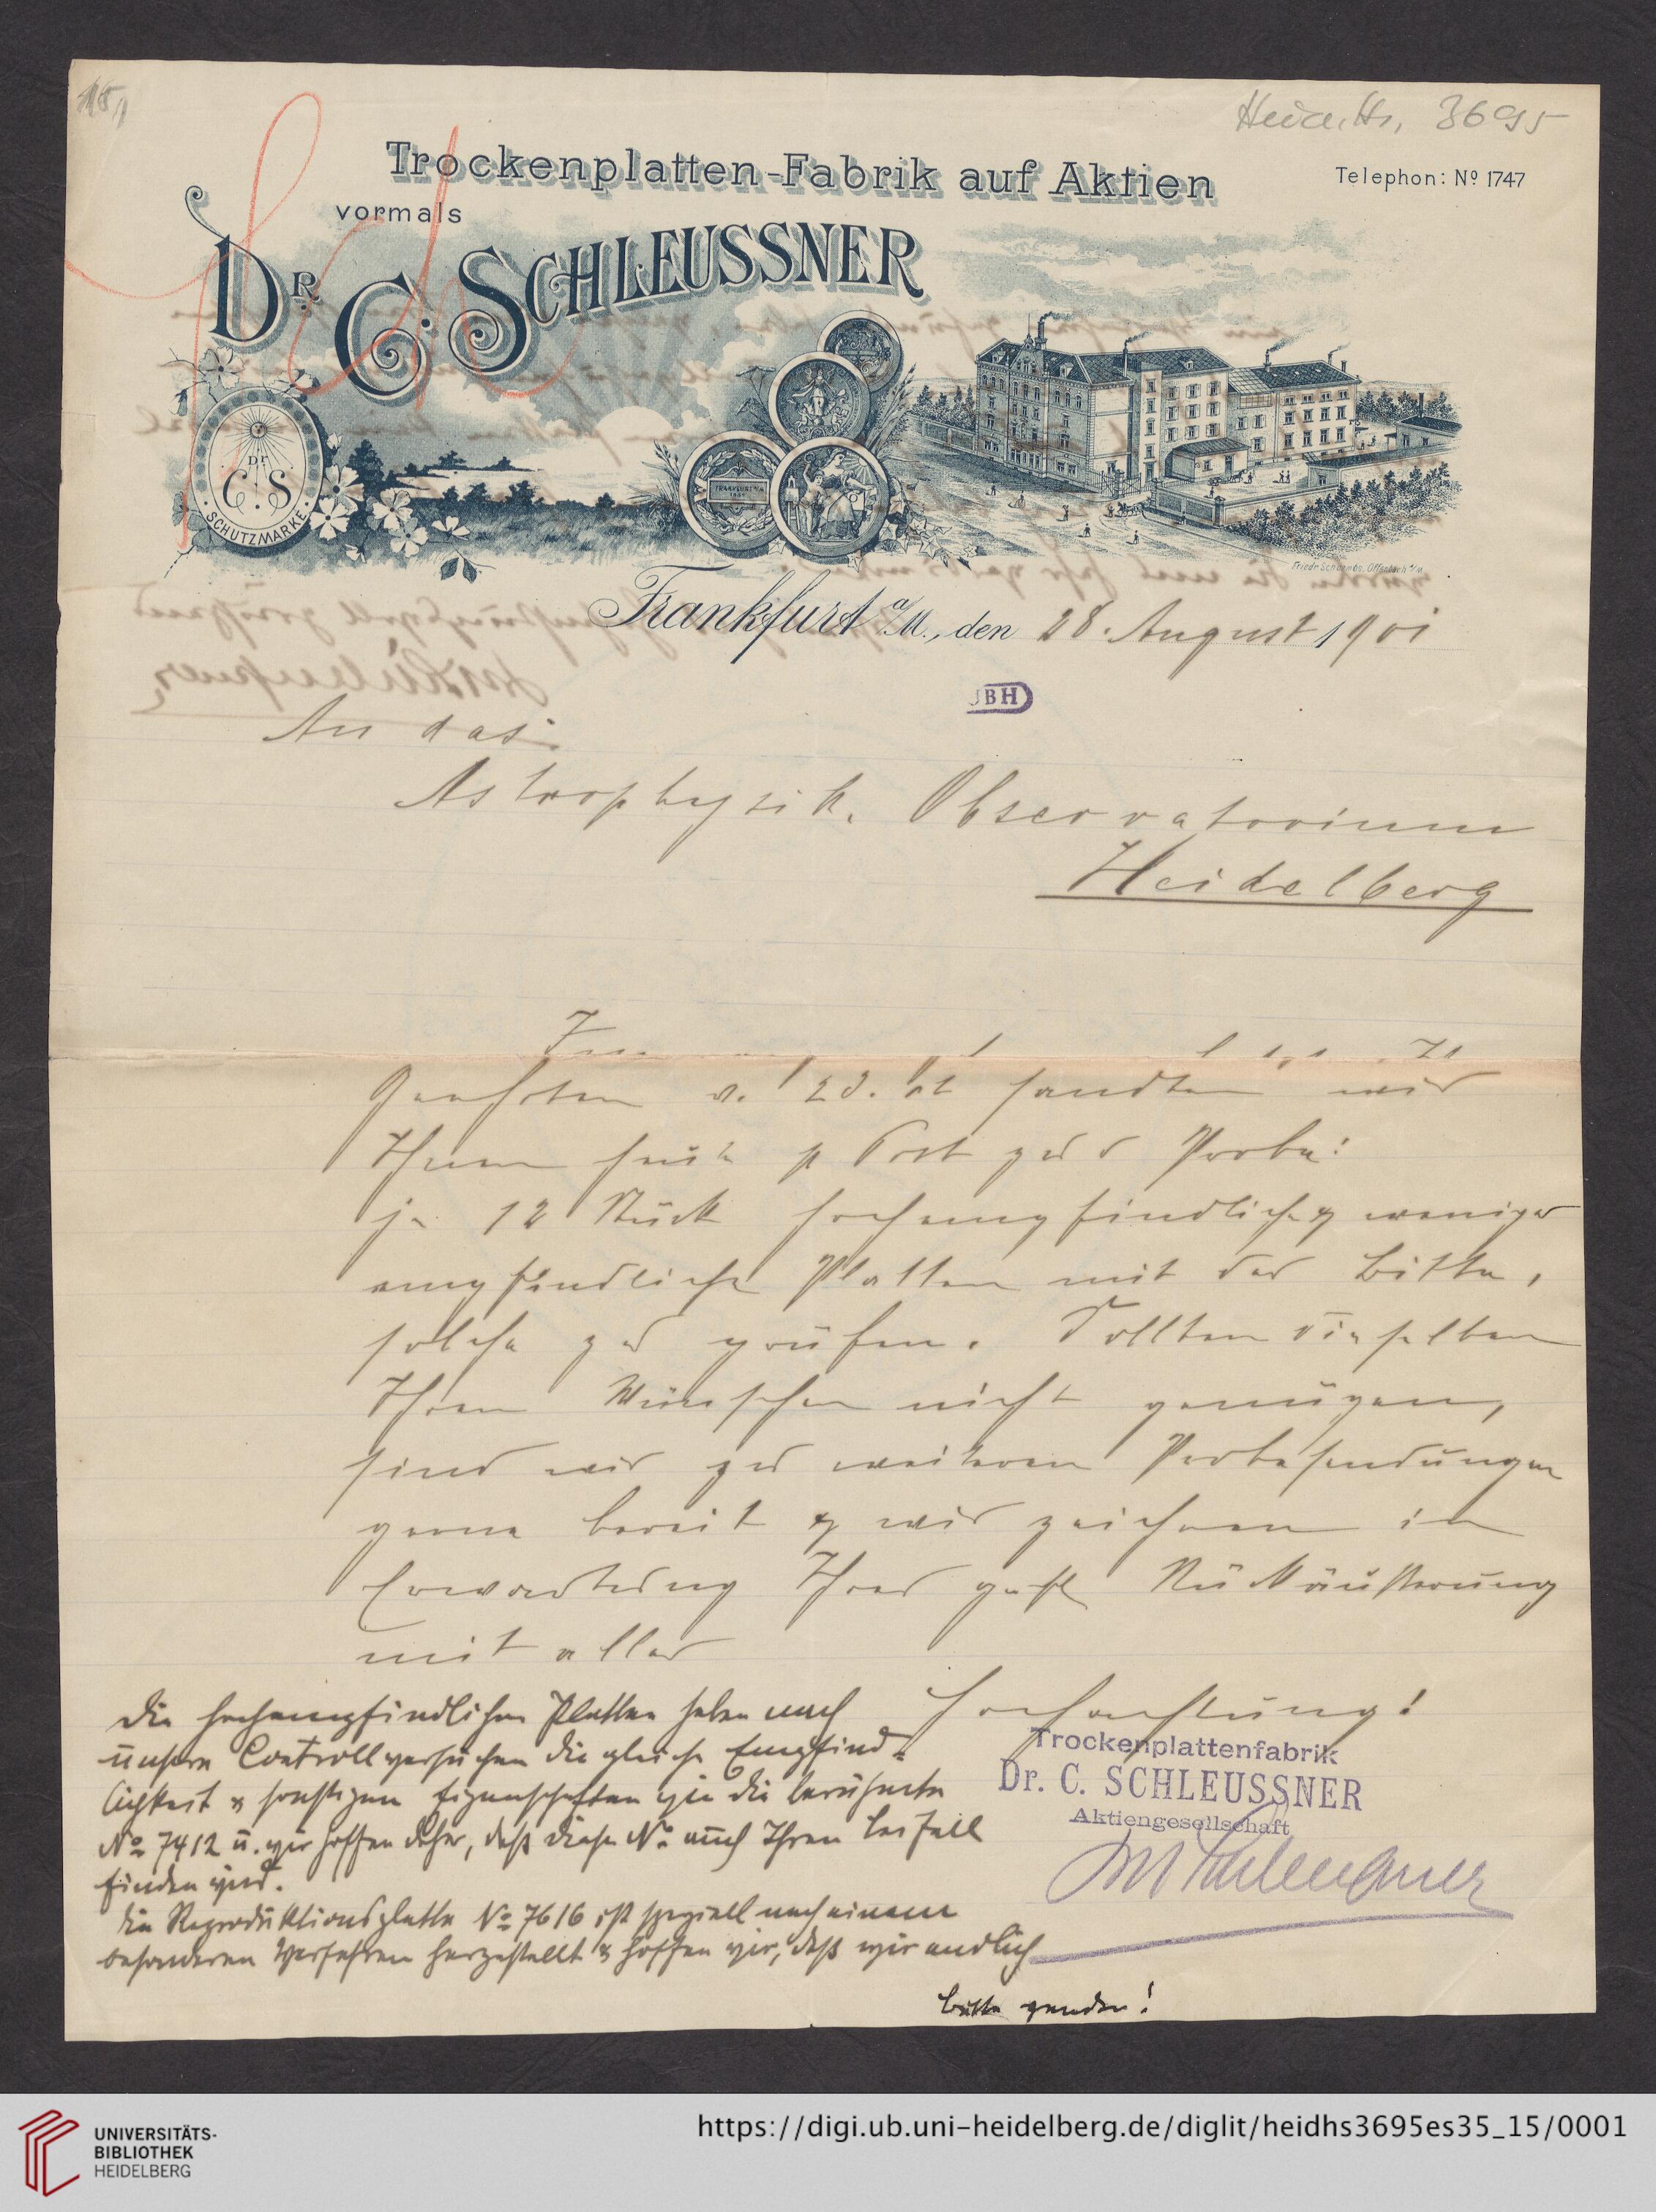 15
Heid. Hs. 3695
Trockenplatten-Fabrik auf Aktien
Telephon: Nº 1747
vormals
DR. C. SCHLEUSSNER
Dr.
C. S.
SCHUTZMARKE
FRANKFURT a/M
Frankfurt a/M., den 28. August 1901
UBH
An das
Astrophysik. Observatorium
Heidelberg
Geehrten v. 23. ct sandten wir
Ihnen heute p Post zur Probe:
je 12 Stück hochempfindliche & weniger
empfindliche Platten mit der Bitte,
solche zu prüfen. Sollten dieselben
Ihren Wünschen nicht genügen,
sind wir zu weiteren Probesendungen
gerne bereit & wir zeichnen in
Erwartung Ihrer gefl Rückäußerung
mit aller
Hochachtung!
Trockenplattenfabrik
Dr. C. SCHLEUSSNER
Aktiengesellschaft
Schleussner
Die hochempfindlichen Platten haben nach
unseren Controllversuchen die gleiche Empfind-
lichkeit & sonstigen Eigenschaften wie die berühmte
Nº 7412 u. wir hoffen daher, daß diese Nº auch Ihren Beifall
finden wird.
Die Reproduktionsplatte Nº 7616 ist speziell nach einem
besonderen Verfahren hergestellt & hoffen wir, daß wir endlich
bitte wenden!
UNIVERSITÄTS-
BIBLIOTHEK
HEIDELBERG
https://digi.ub.uni-heidelberg.de/diglit/heidhs3695es35_15/0001